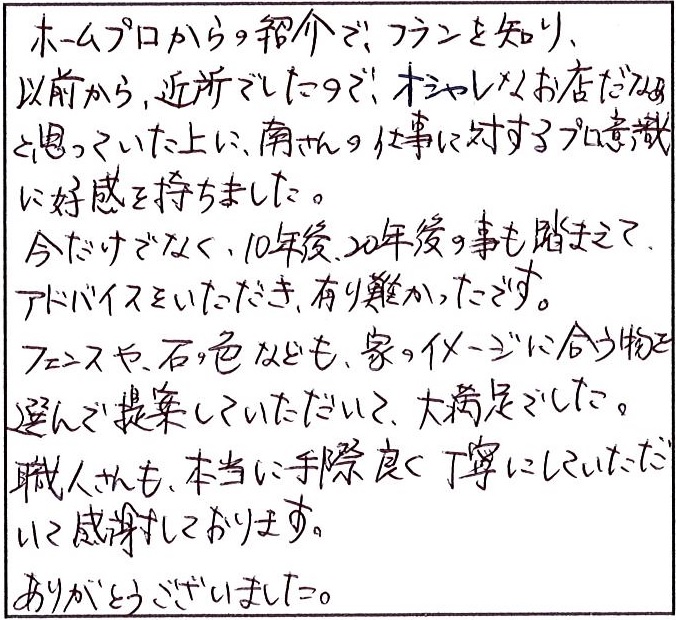 ホームプロからの紹介で、フランを知り、
以前から、近所でしたので、オシャレなお店だなぁ
と思っていた上に、南さんの仕事に対するプロ意識
に好感を持ちました。
今だけでなく、10年後、20年後の事も踏まえて、
アドバイスをいただき、有り難かったです。
フェンスや、石の色なども、家のイメージに合う物を
選んで提案していただいて、大満足でした。
職人さんも、本当に手際良く丁寧にしていただ
いて感謝しております。
ありがとうございました。